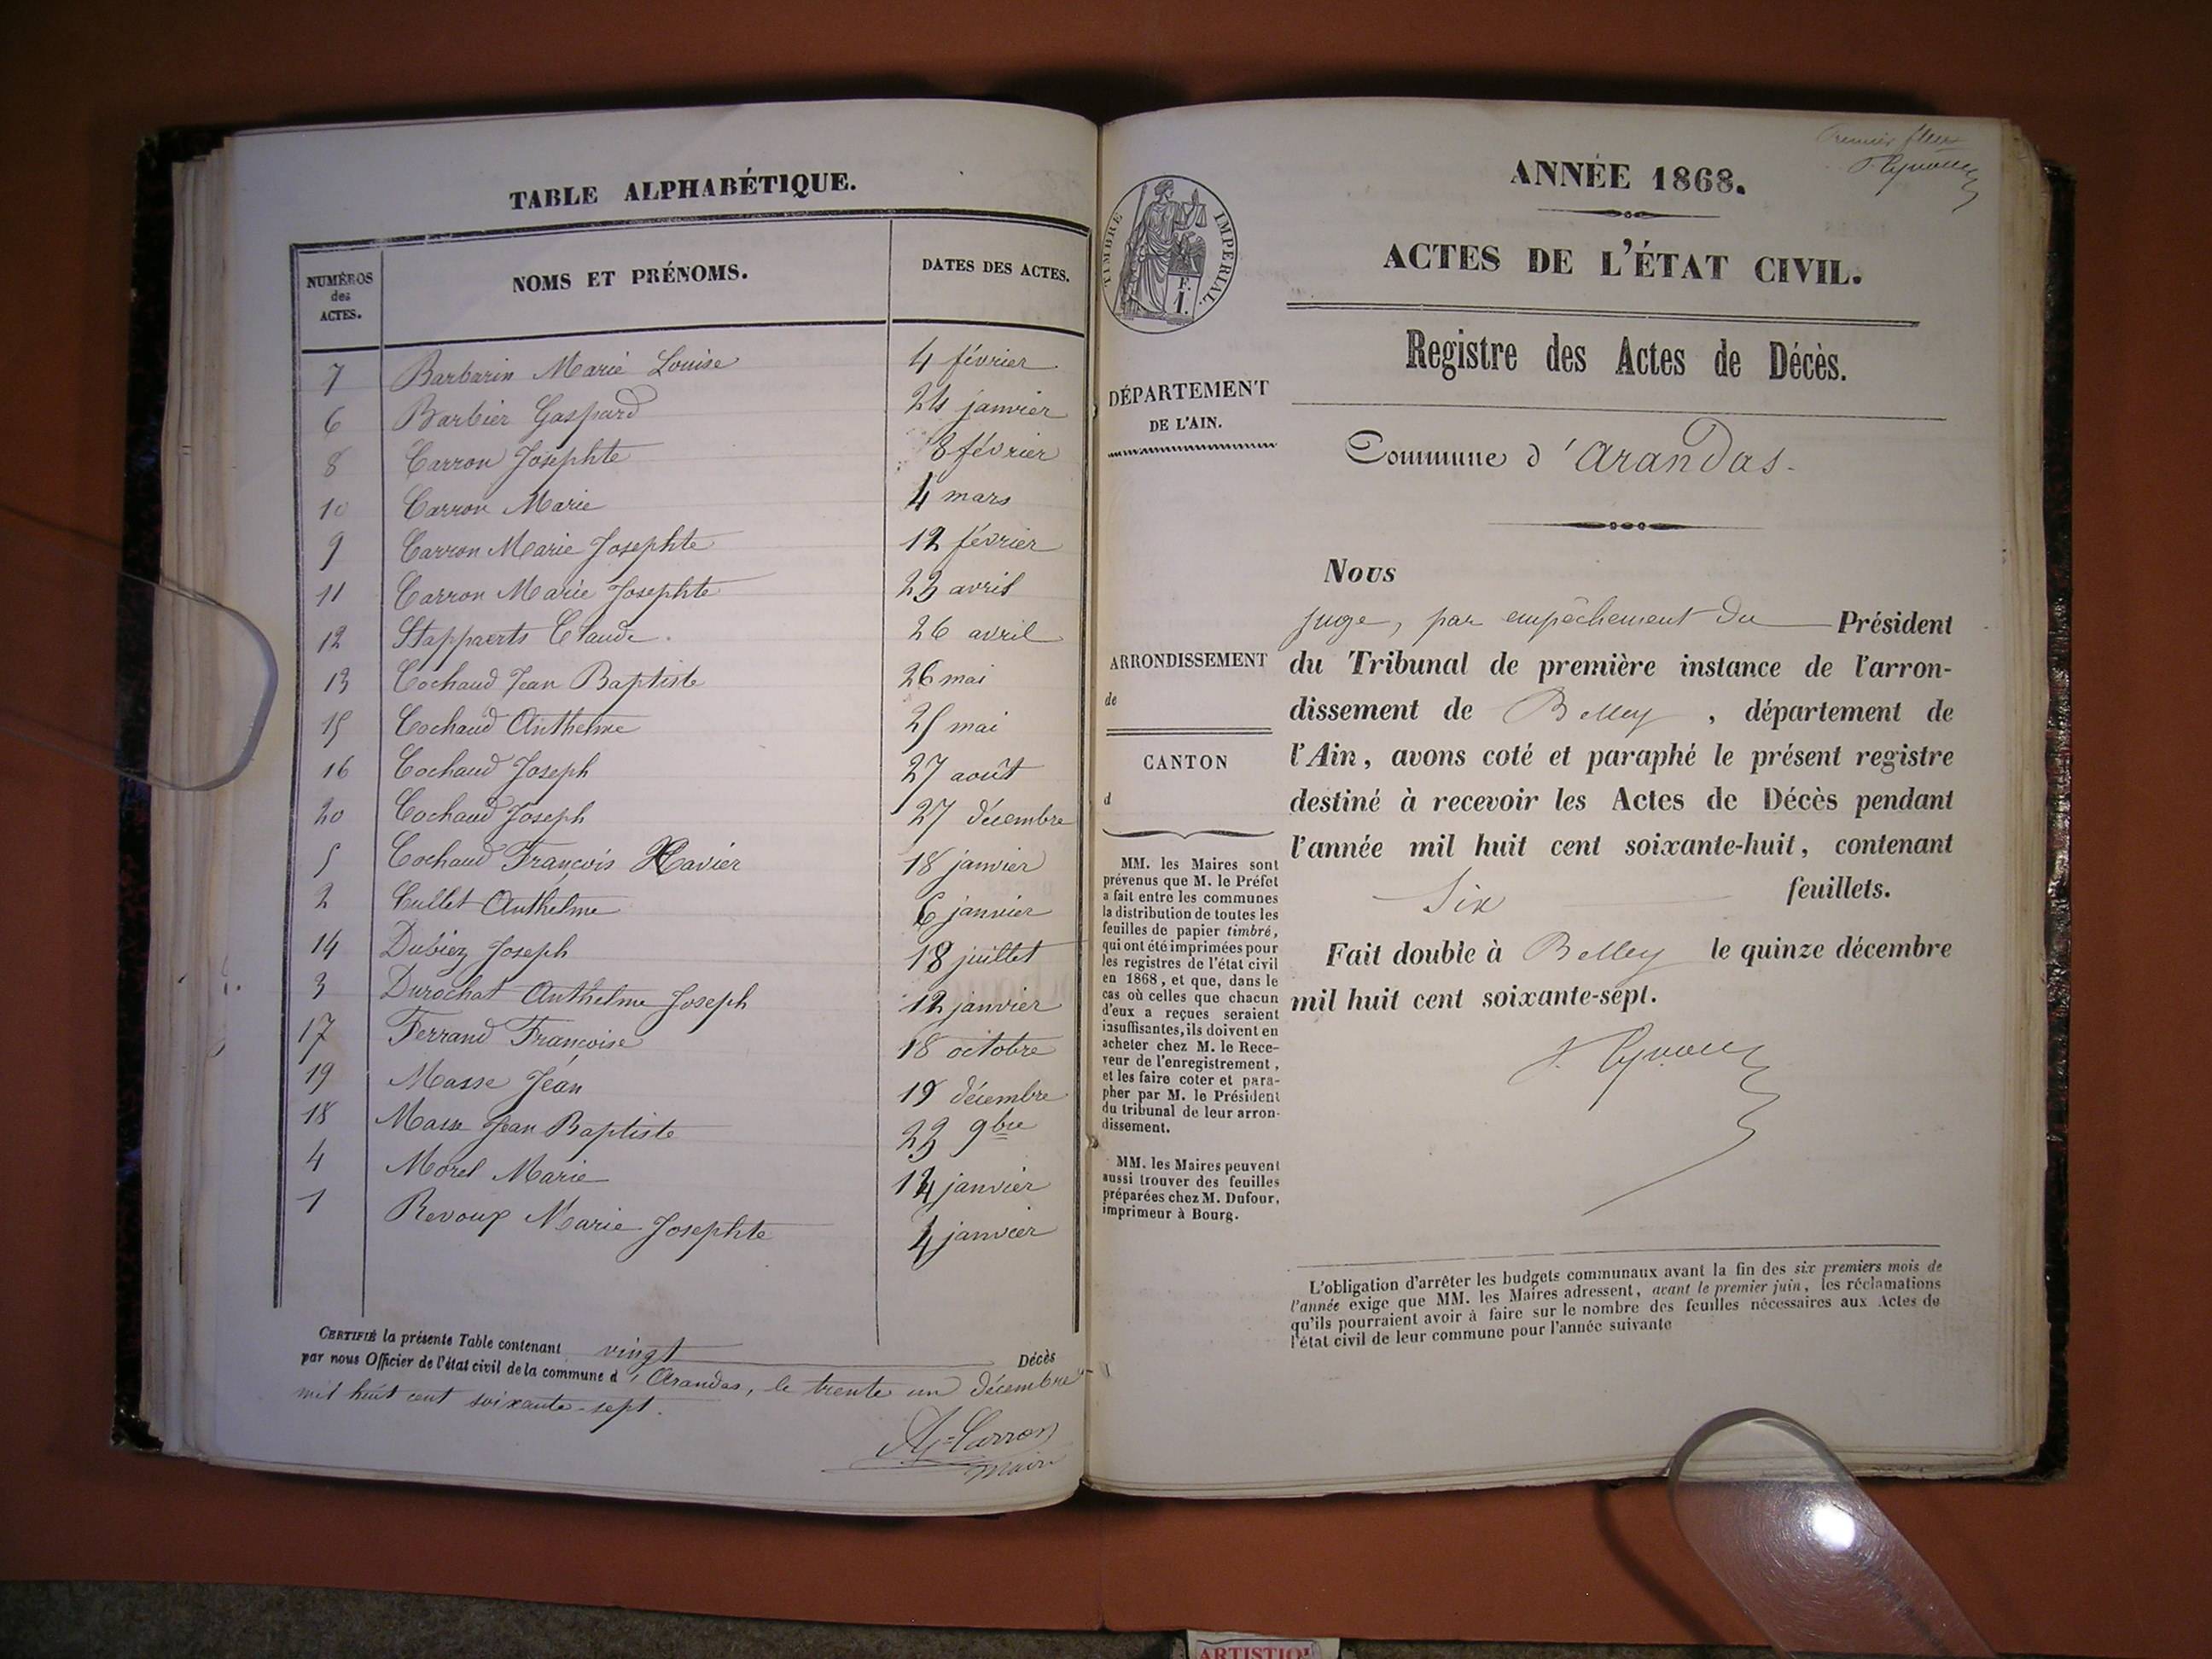 TABLE ALPHABÉTIQUE.
NUMÉROS des ACTES. NOMS ET PRÉNOMS. DATES DES ACTES.
7 Barbarin Marie Louise 4 février
6 Barbier Gaspard 24 janvier
8 Carron Josephte 8 février
10 Carron Marie 4 mars
9 Carron Marie Josephte 12 février
11 Carron Marie Josephte 23 avril
12 Stappaerts Claude. 26 avril
13 Cochaud Jean Baptiste 26 mai
15 Cochaud Anthelme 25 mai
16 Cochaud Joseph 27 août
20 Cochaud Joseph 27 décembre
5 Cochaud François Xavier 18 janvier
2 Cullet Anthelme 6 janvier
14 Dubiez Joseph 18 juillet
3 Durochat Anthelme Joseph 12 janvier
17 Ferrand Françoise 18 octobre
19 Masse Jean 19 décembre
18 Masse Jean Baptiste 23 9bre
4 Morel Marie 14 janvier
1 Revoux Marie Josephte 4 janvier
CERTIFIÉ la présente Table contenant vingt Décès
par nous Officier de l'état civil de la commune d'Arandas, le trente un décembre
mil huit cent soixante-sept.
Carron
maire
Premier
ANNÉE 1868.
ACTES DE L'ÉTAT CIVIL.
TIMBRE IMPÉRIAL.
F.
1.
Registre des Actes de Décès.
DÉPARTEMENT
DE L'AIN.
Commune d'Arandas.
ARRONDISSEMENT
de
CANTON
d
MM. les Maires sont
prévenus que M. le Préfet
a fait entre les communes
la distribution de toutes les
feuilles de papier timbré,
qui ont été imprimées pour
les registres de l'état civil
en 1868, et que, dans le
cas où celles que chacun
d'eux a reçues seraient
insuffisantes, ils doivent en
acheter chez M. le Rece-
veur de l'enregistrement,
et les faire coter et para-
pher par M. le Président
du tribunal de leur arron-
dissement.
MM. les Maires peuvent
aussi trouver des feuilles
préparées chez M. Dufour,
imprimeur à Bourg.
Nous
juge, par empêchement du Président
du Tribunal de première instance de l'arron-
dissement de Belley, département de
l'Ain, avons coté et paraphé le présent registre
destiné à recevoir les Actes de Décès pendant
l'année mil huit cent soixante-huit, contenant
Six feuillets.
Fait double à Belley le quinze décembre
mil huit cent soixante-sept.
L'obligation d'arrêter les budgets communaux avant la fin des six premiers mois de
l'année exige que MM. les Maires adressent, avant le premier juin, les réclamations
qu'ils pourraient avoir à faire sur le nombre des feuilles nécessaires aux Actes de
l'état civil de leur commune pour l'année suivante